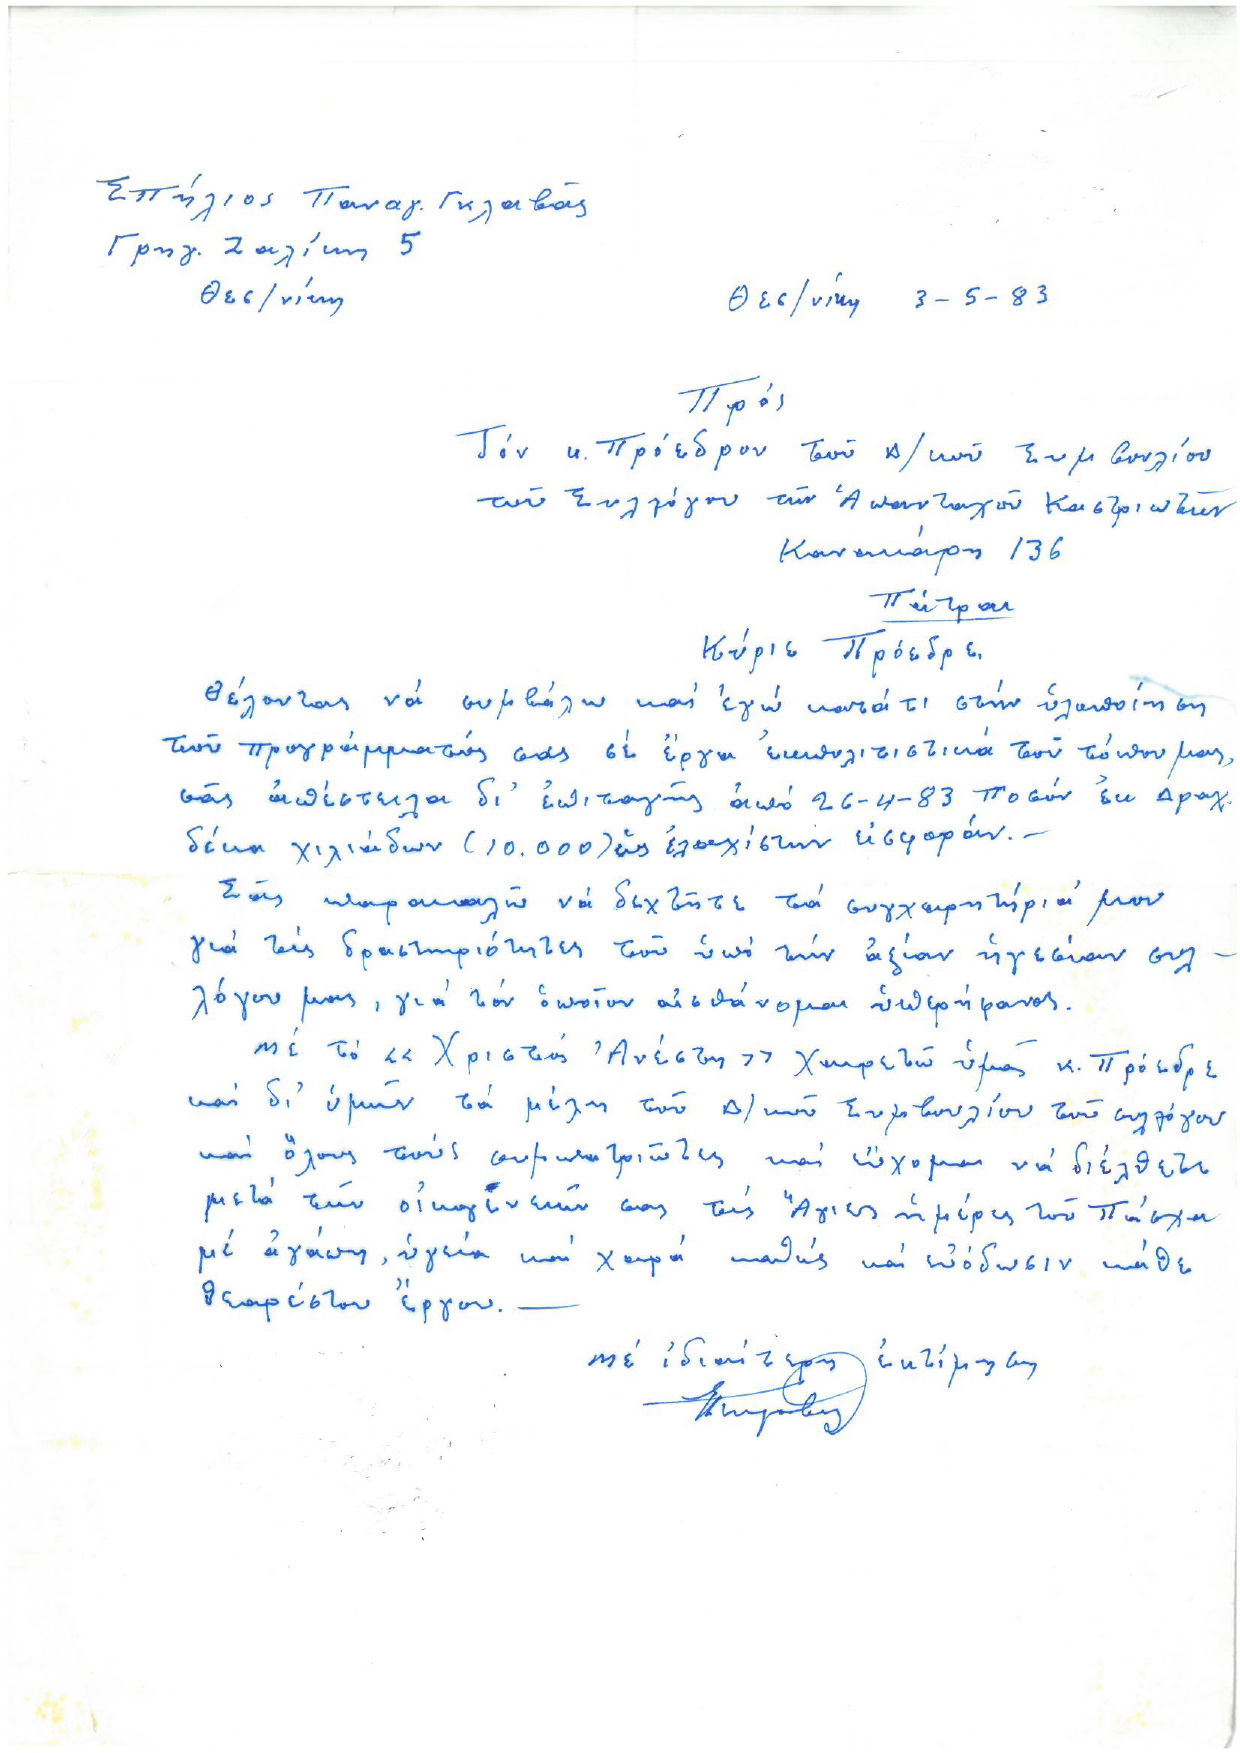 Σπήλιος Παναγ. Γκλαβᾶς
Γρηγ. Ζαλίκη 5
Θεσ/νίκη
Θεσ/νίκη 3-5-83
Πρός
Τόν κ. Πρόεδρον τοῦ Δ/κοῦ Συμβουλίου
τοῦ Συλλόγου τῶν Ἁπανταχοῦ Καστριωτῶν
Κανακάρη 136
Πάτραι
Κύριε Πρόεδρε.
Θέλοντας νά συμβάλω καί ἐγώ κατά τι στήν ὑλοποίηση
τοῦ προγράμματός σας σέ ἔργα ἐκπολιτιστικά τοῦ τόπου μας,
σᾶς ἀπέστειλα δι' ἐπιταγῆς ἀπό 26-4-83 ποσόν ἐκ Δραχ.
δέκα χιλιάδων (10.000) ὡς ἐλαχίστην εἰσφοράν. —
Σᾶς παρακαλῶ νά δεχτῆτε τά συγχαρητήριά μου
γιά τίς δραστηριότητες τοῦ ὑπό τήν ἀξίαν ἡγεσίαν συλ-
λόγου μας, γιά τόν ὁποῖον αἰσθάνομαι ὑπερήφανος.
Μέ τό «Χριστός Ἀνέστη» χαιρετῶ ὑμᾶς κ. Πρόεδρε
καί δι' ὑμῶν τά μέλη τοῦ Δ/κοῦ Συμβουλίου τοῦ συλλόγου
καί ὅλους τούς συμπατριῶτες καί εὔχομαι νά διέλθετε
μετά τῶν οἰκογενειῶν σας τίς Ἅγιες ἡμέρες τοῦ Πάσχα
μέ ἀγάπη, ὑγεία καί χαρά καθώς καί εὐόδωσιν κάθε
θεαρέστου ἔργου. —
Μέ ἰδιαίτερη ἐκτίμηση